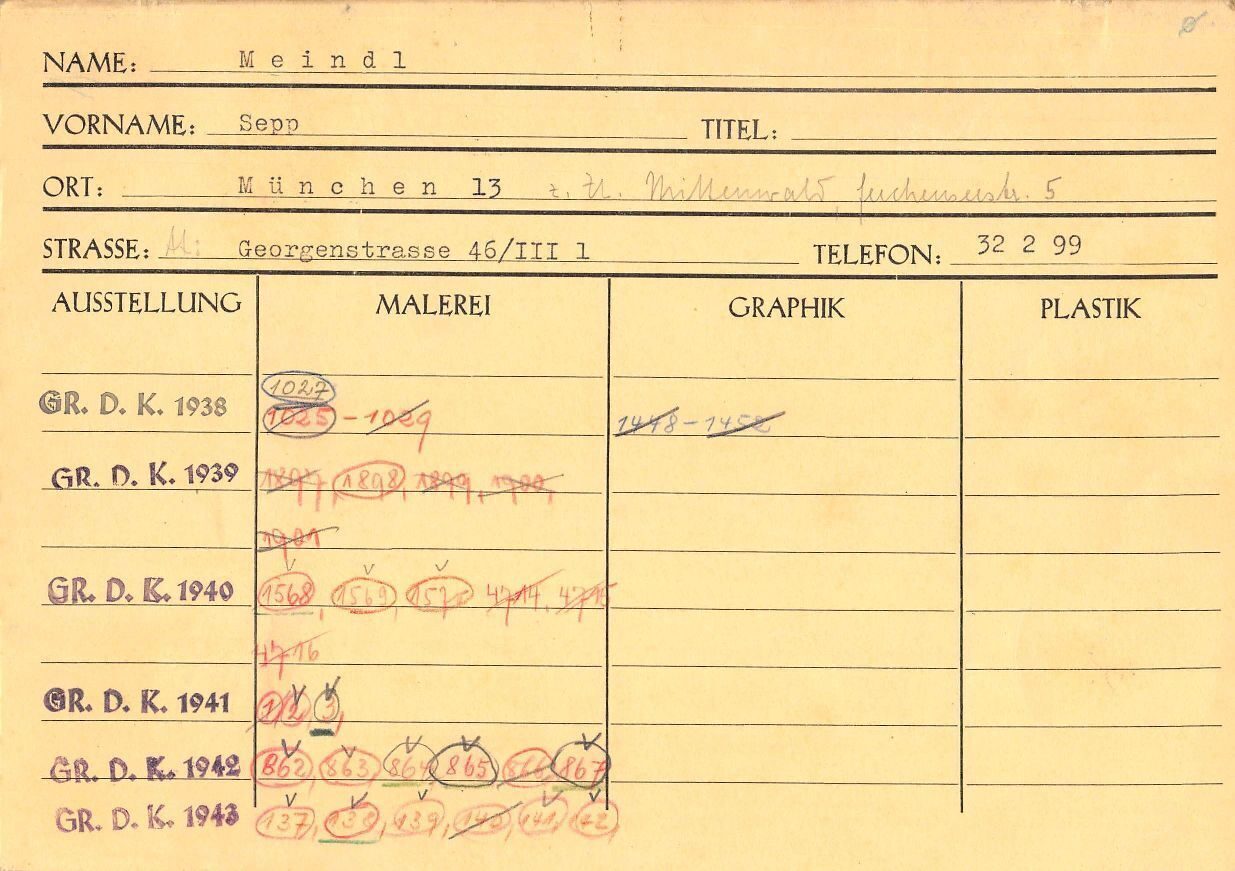 NAME: Meindl
VORNAME: Sepp TITEL:
ORT: München 13 z. Zt. Mittenwald,  5
STRASSE: Georgenstrasse 46/III l TELEFON: 32 2 99
AUSSTELLUNG MALEREI GRAPHIK PLASTIK
1027
GR. D. K. 1938 1025 - 1029 1448 - 1452
GR. D. K. 1939 1897, 1898, 1899, 1900,
1901
GR. D. K. 1940 1568, 1569, 1570 4714, 4715
4716
GR. D. K. 1941 1, 2, 3,
GR. D. K. 1942 862, 863, 864, 865, 866, 867
GR. D. K. 1943 137, 138, 139, 140, 141, 142,